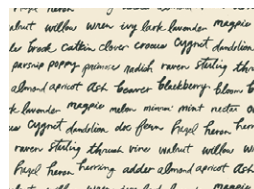 raven heron
walnut willow wren ivy lark lavender magpie
brook catkin clover crocus cygnet dandelion
parsnip poppy primrose radish raven starling
almond apricot ash beaver blackberry bloom
lavender magpie melon minnow mint nectar
cygnet dandelion doe fawn hazel heron
raven starling thrush vine walnut willow
hazel heron herring adder almond apricot ash
willow